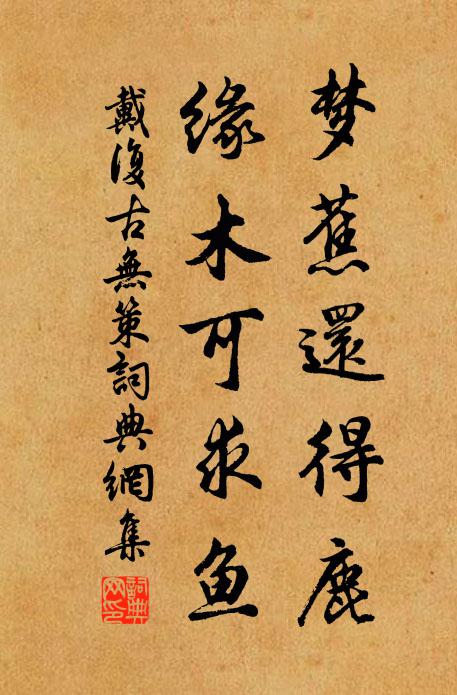 梦蕉還得鹿
缘木可求鱼
戴復古無策詞典網集
詞典网印